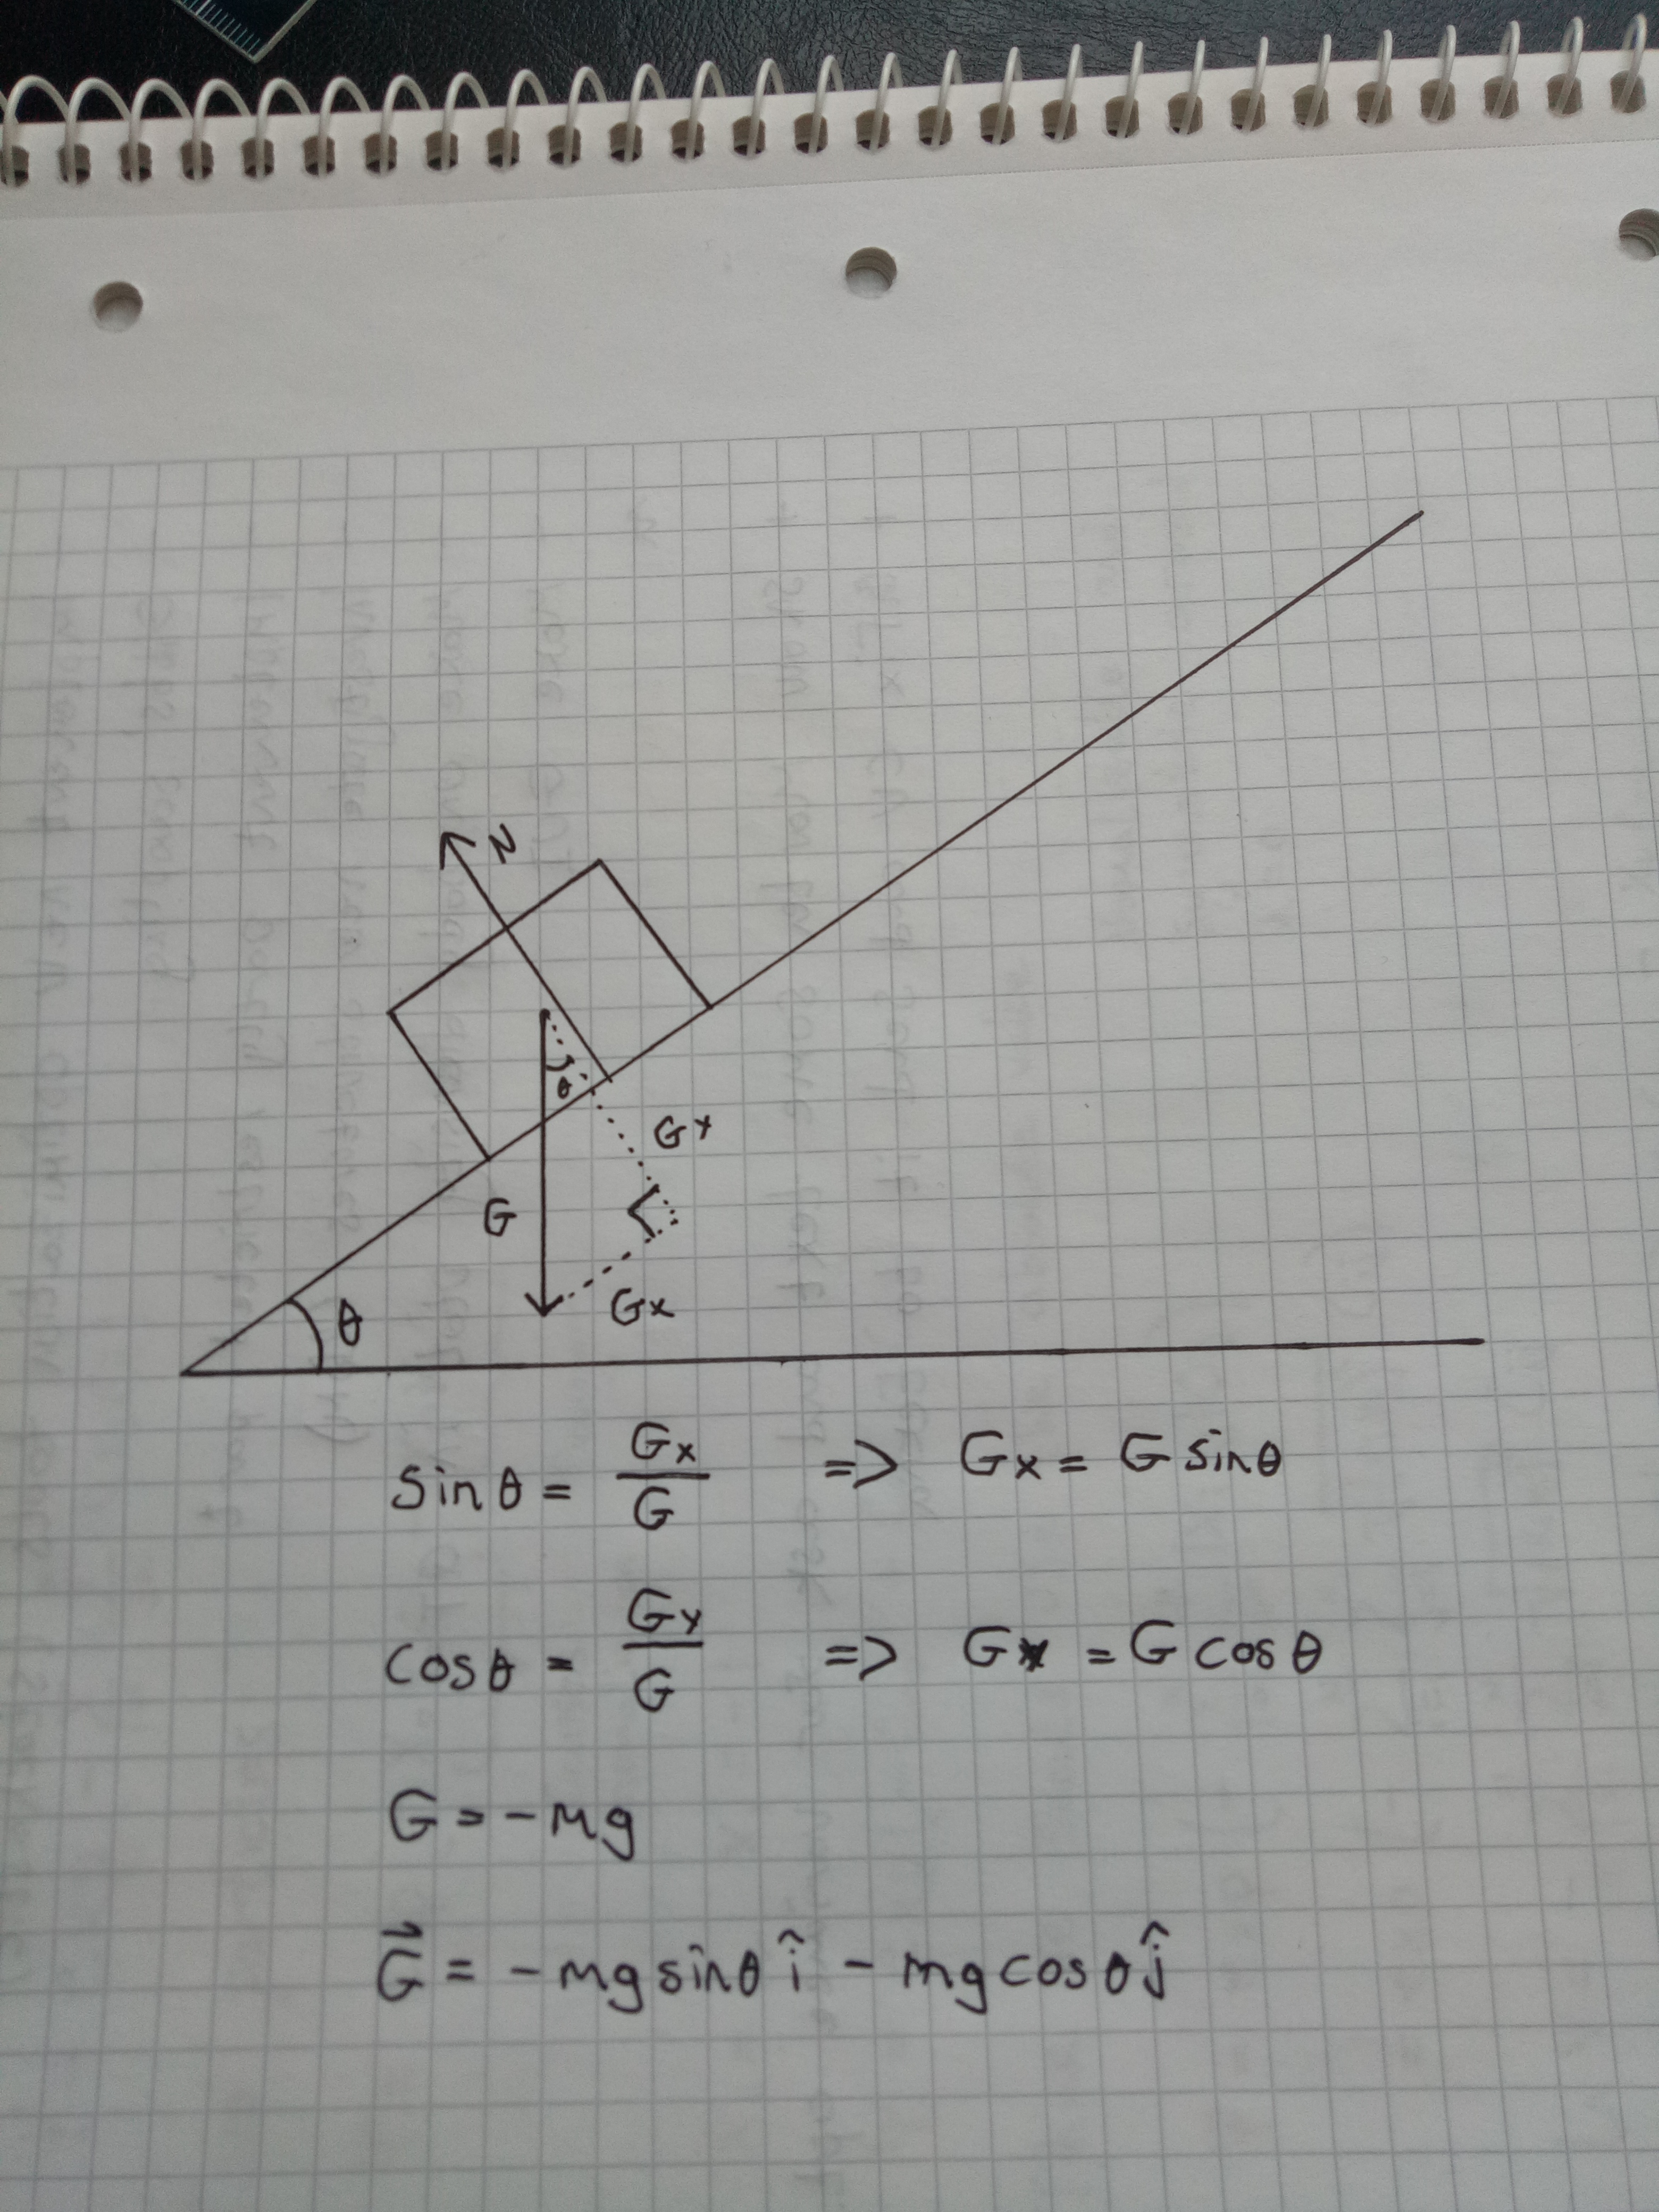 N
θ
Gy
G
Gx
θ
sinθ = Gx/G => Gx = G sinθ
cosθ = Gy/G => Gy = G cosθ
G = -mg
G⃗ = -mg sinθ î - mg cosθ ĵ